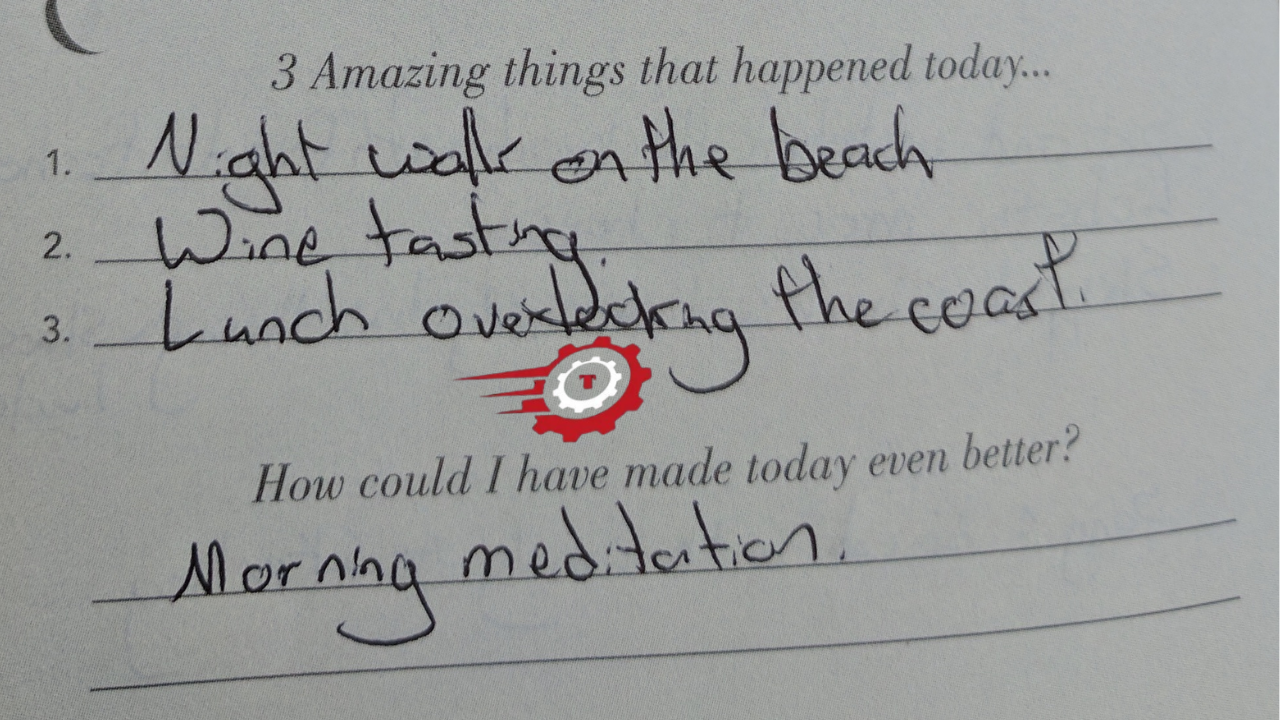 3 Amazing things that happened today...
1. Night walk on the beach
2. Wine tasting.
3. Lunch overlooking the coast.
T
How could I have made today even better?
Morning meditation.